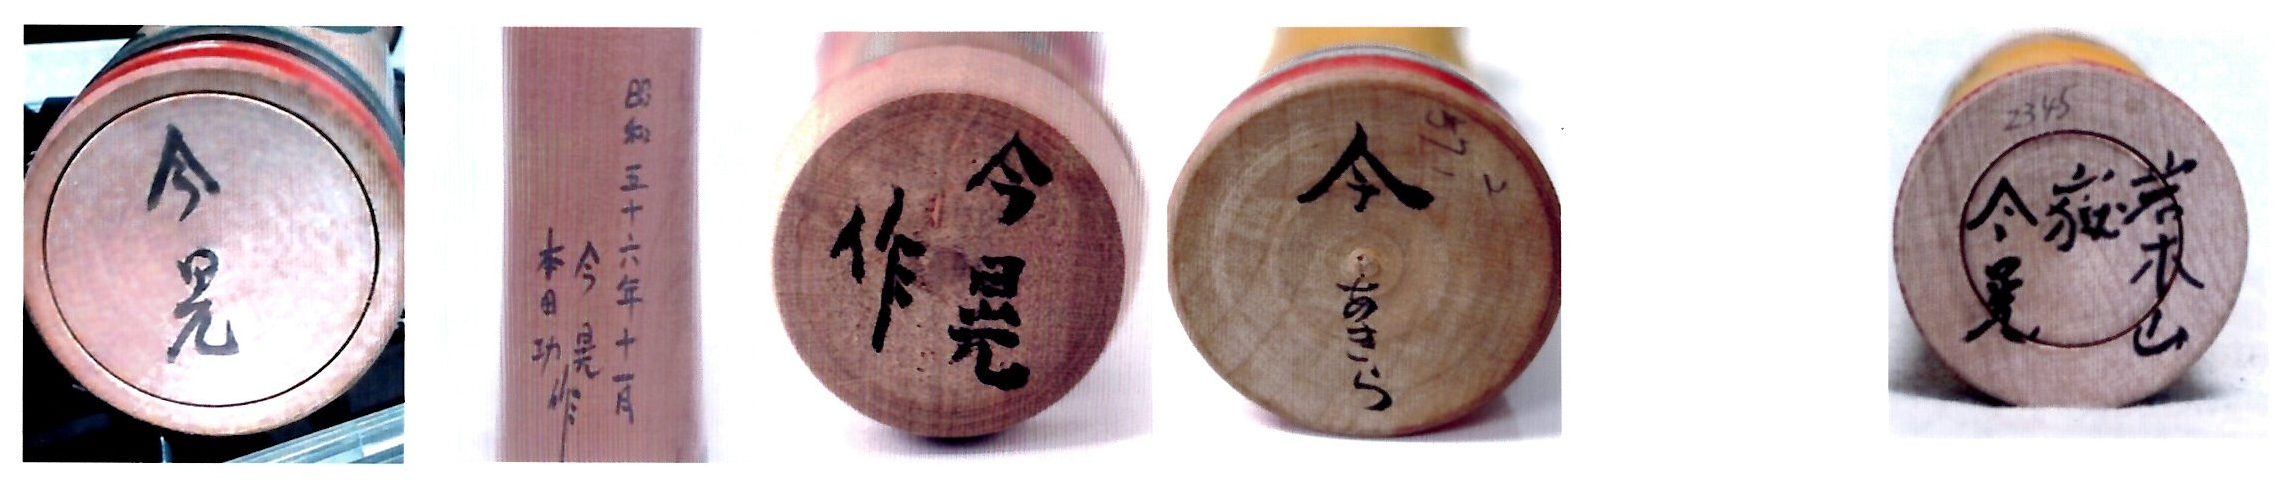 今晃
昭和三十六年十一月
今晃
本田功作
今晃
作
今
あきら
57.
2345
岩木山
嶽
今晃